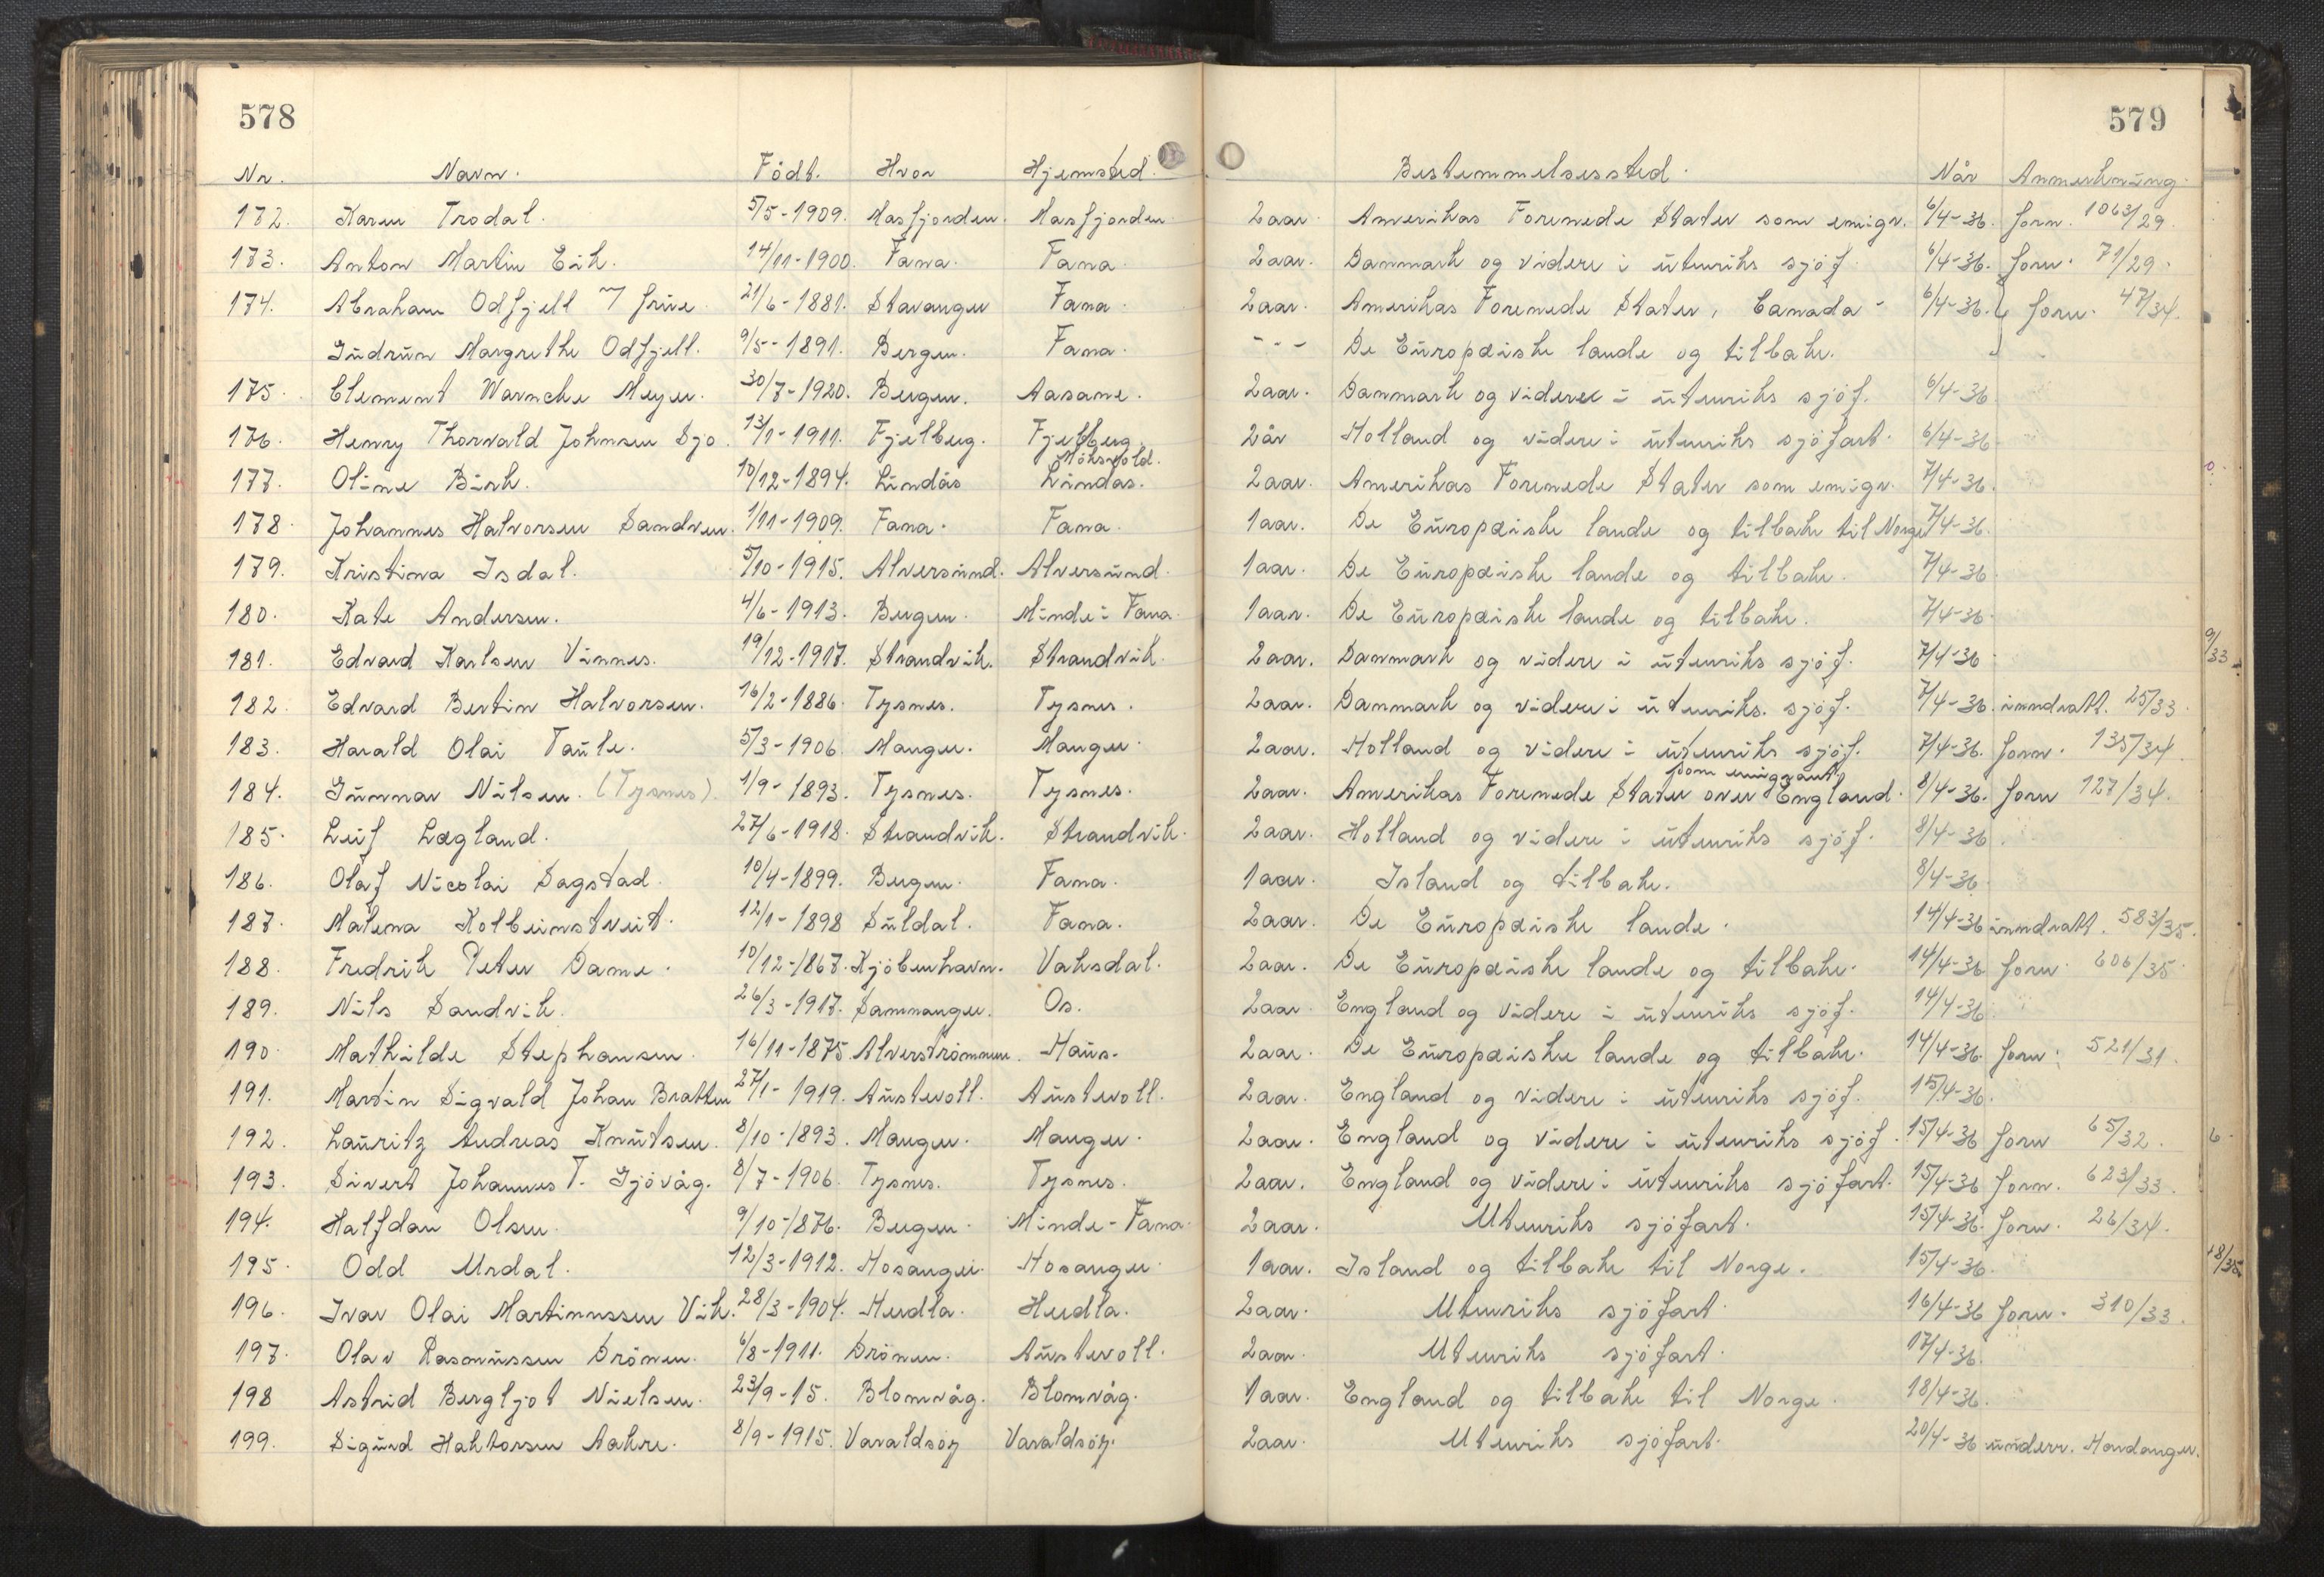 578
579
Nr. Navn. Födt. Hvor Hjemsted. Bestemmelsessted. Når Anmerkning.
172. Karen Trodal. 5/5-1909. Masfjorden. Masfjorden 2 aar. Amerikas Forenede Stater som emigr. 6/4-36. forn. 1063/29.
173. Anton Martin Eik. 14/11-1900. Fana. Fana. 2 aar. Danmark og videre i utenriks sjöf. 6/4-36. forn. 71/29.
174. Abraham Odfjell m/ frue. 21/6-1881. Stavanger Fana. 2 aar. Amerikas Forenede Stater, Canada - 6/4-36. forn. 47/34.
Gudrun Margrethe Odfjell. 9/5-1891. Bergen. Fana. - - - De Europæiske lande og tilbake.
175. Clement Warncke Meyer. 30/7-1920. Bergen. Aasane. 2 aar. Danmark og videre i utenriks sjöf. 6/4-36
176. Henry Thorvald Johnsen Sjo. 13/1-1911. Fjelberg. Fjelberg. 2 år Holland og videre i utenriks sjöfart. 6/4-36
177. Oline Birk. 10/12-1894. Lindås Lindås. 2 aar. Amerikas Forenede Stater som emigr. 7/4-36.
178. Johannes Halvorsen Sandven. 1/11-1909. Fana. Fana. 1 aar. De Europæiske lande og tilbake til Norge 7/4-36.
179. Kristina Isdal. 5/10-1915. Alversund. Alversund. 1 aar. De Europæiske lande og tilbake. 7/4-36
180. Kate Andersen. 4/6-1913. Bergen. Minde i Fana. 1 aar. De Europæiske lande og tilbake. 7/4-36.
181. Edvard Karlsen Vinnes. 19/12-1917. Strandvik. Strandvik. 2 aar. Danmark og videre i utenriks sjöf. 7/4-36 9/33
182. Edvard Bertin Halvorsen. 16/2-1886. Tysnes. Tysnes. 2 aar. Danmark og videre i utenriks. sjöf. 7/4-36. inndratt. 25/33.
183. Harald Olai Taule. 5/3-1906. Manger. Manger. 2 aar. Holland og videre i utenriks sjöf. 7/4-36. forn. 135/34.
som emigrant
184. Gunnar Nilsen. (Tysnes). 1/9-1893. Tysnes. Tysnes. 2 aar. Amerikas Forenede Stater over England. 8/4-36. forn 127/34.
185. Leif Lægland. 27/6-1918. Strandvik. Strandvik. 2 aar. Holland og videre i utenriks sjöf. 8/4-36.
186. Olaf Nicolai Sagstad. 10/4-1899. Bergen. Fana. 1 aar. Island og tilbake. 8/4-36.
187. Malena Kolbeinstveit. 12/1-1898 Suldal. Fana. 2 aar. De Europæiske lande. 14/4-36 inndratt. 583/35.
188. Fredrik Peter Dame. 10/12-1867. Kjöbenhavn. Vaksdal. 2 aar. De Europæiske lande og tilbake. 14/4-36 forn. 606/35.
189. Nils Sandvik. 26/3-1917. Samnanger. Os. 2 aar. England og videre i utenriks sjöf. 14/4-36
190. Mathilde Stephansen. 16/11-1875 Alverströmmen. Haus. 2 aar. De Europæiske lande og tilbake. 14/4-36. forn. 521/31.
191. Martin Sigvald Johan Bratten 27/1-1919. Austevoll. Austevoll. 2 aar. England og videre i utenriks sjöf. 15/4-36.
192. Lauritz Andreas Knutsen. 8/10-1893. Manger. Manger. 2 aar. England og videre i utenriks sjöf. 15/4-36 forn 65/32. 6
193. Sivert Johannes T. Gjövåg. 8/7-1906. Tysnes. Tysnes. 2 aar. England og videre i utenriks sjöfart. 15/4-36 forn. 623/33.
194. Halfdan Olsen. 9/10-1876. Bergen. Minde-Fana. 2 aar. Utenriks sjöfart. 15/4-36. forn. 26/34.
195. Odd Urdal. 12/3-1912. Hosanger. Hosanger. 1 aar. Island og tilbake til Norge. 15/4-36. 18/35
196. Ivar Olai Martinussen Vik. 28/3-1904. Herdla. Herdla. 2 aar. Utenriks sjöfart. 16/4-36 forn. 310/33.
197. Olav Rasmussen Drönen. 6/8-1911. Drönen. Austevoll. 2 aar. Utenriks sjöfart. 17/4-36.
198 Astrid Bergljot Nielsen. 23/9-15. Blomvåg. Blomvåg. 1 aar. England og tilbake til Norge. 18/4-36.
199. Sigurd Haktorsen Aakre. 8/9-1915. Varaldsöy Varaldsöy. 2 aar. Utenriks sjöfart. 20/4-36 underr. Hardanger.